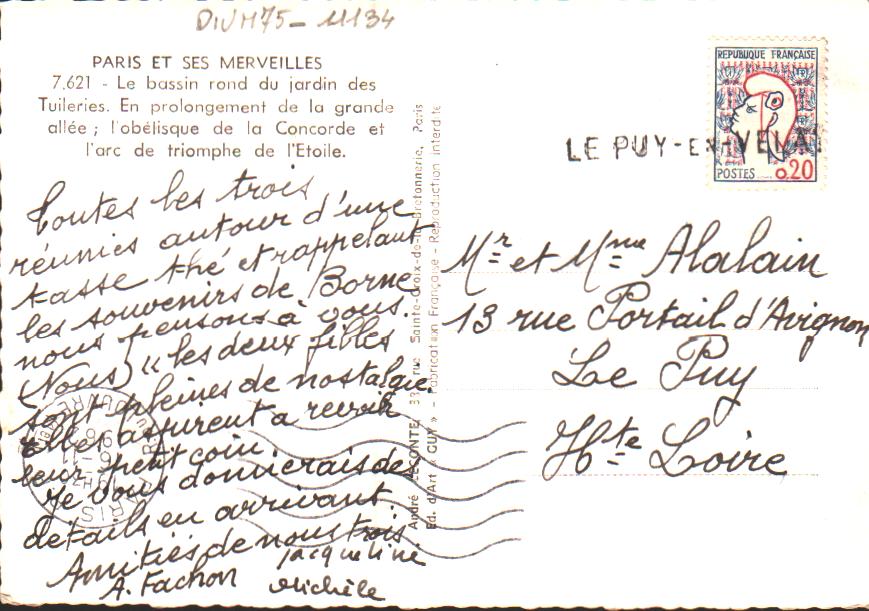 DIVM75-11134
PARIS ET SES MERVEILLES
7.621 - Le bassin rond du jardin des
Tuileries. En prolongement de la grande
allée ; l'obélisque de la Concorde et
l'arc de triomphe de l'Etoile.
Toutes les trois
réunies autour d'une
tasse thé et rappelant
les souvenirs de Borne
nous pensons à vous.
(Nous) « les deux filles
sont pleines de nostalgie
Elles aspirent a revoir
leur petit coin.
Je vous donnerais des
details en arrivant
Amitiés de nous trois
A. Fachon
Jacqueline
Michèle
André LECONTE, 38, rue Sainte-Croix-de-la-Bretonnerie, Paris
Ed. d'Art « GUY » - Fabrication Française - Reproduction interdite
REPUBLIQUE FRANÇAISE
POSTES 0,20
LE PUY-EN-VELAY
Mr et Mme Alalain
13 rue Portail d'Avignon
Le Puy
Hte Loire
PARIS